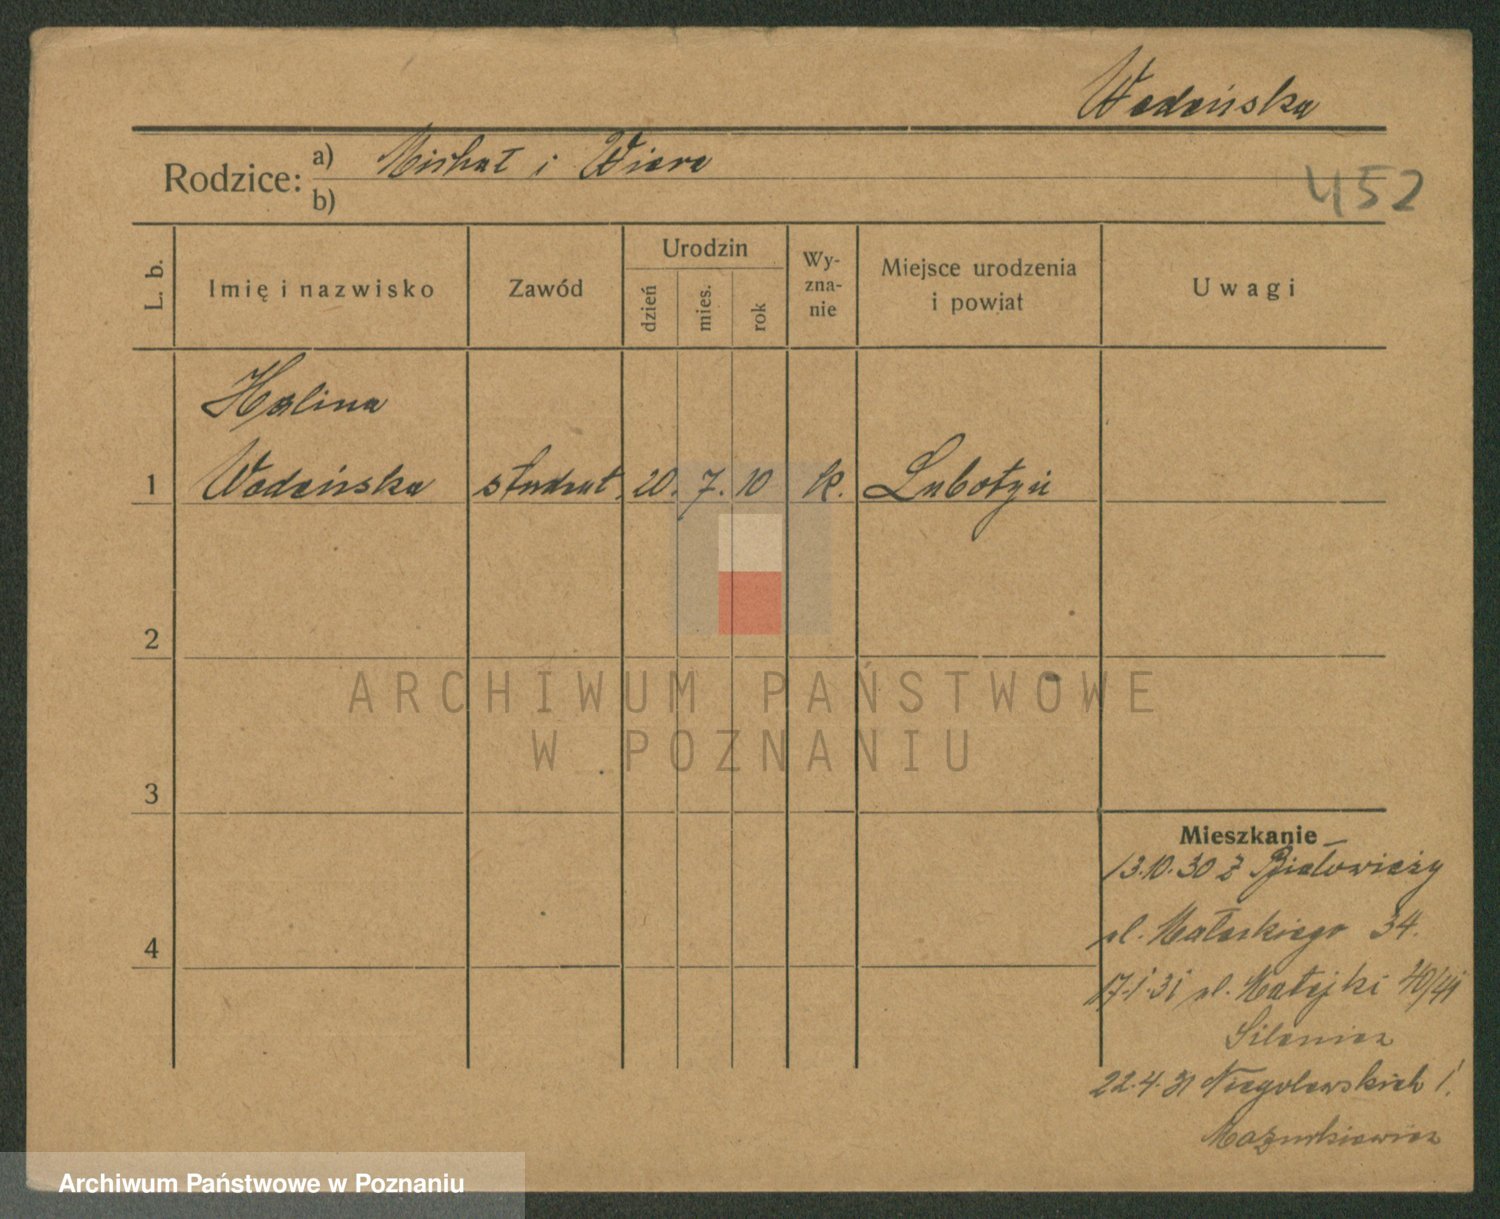 Wodeńska
Rodzice: a) Michał i Wiera
b)
452
L. b. Imię i nazwisko Zawód Urodzin dzień mies. rok Wyznanie Miejsce urodzenia i powiat Uwagi
Halina
1 Wodeńska student. 20. 7. 10 k. Lubotyń
2
ARCHIWUM PAŃSTWOWE
W POZNANIU
3
Mieszkanie
13.10.30 z Białowieży
4 34.
17.1.31 pl. Matejki 40/41
22.4.31 Niegolewskich 1.
Mazurkiewicz
Archiwum Państwowe w Poznaniu